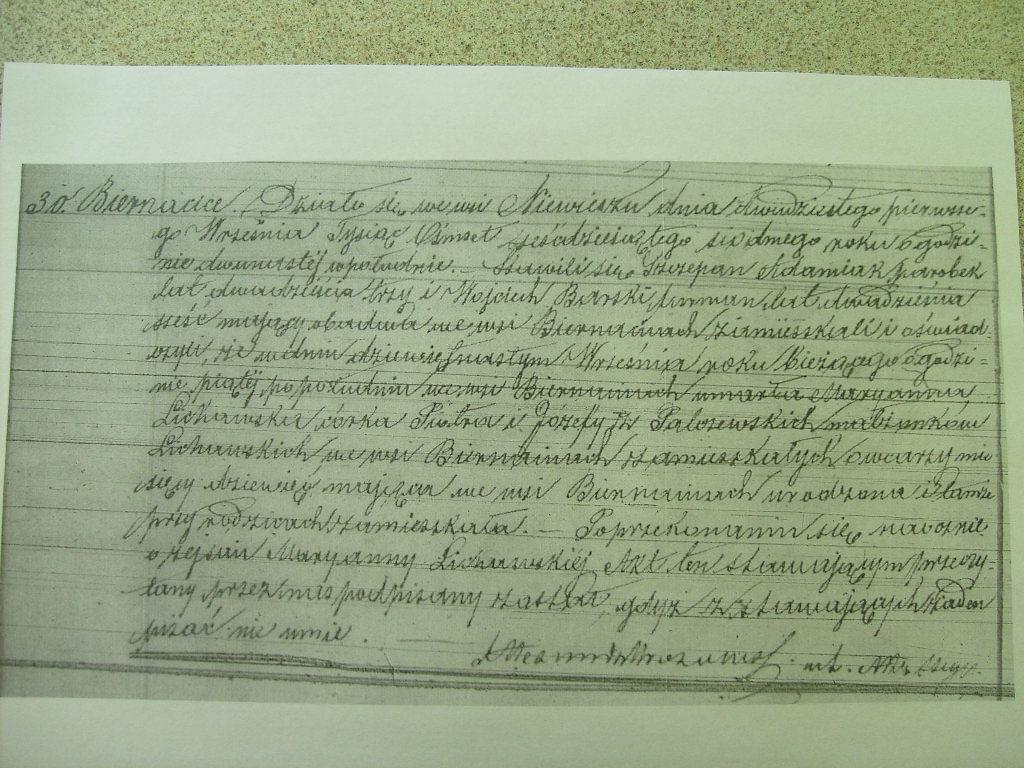 30. Biernacice Działo się we wsi Niewieszu dnia dwudziestego pierwsze-
go Września Tysiąc Ośmset sześdziesiątego siodmego roku o godzi-
nie dwunastéj w południe. — Stawili się Szczepan Adamiak parobek
lat dwadzieścia trzy i Wojciech Barski furman lat dwadzieścia
sześć mający obadwa we wsi Biernacicach zamieszkali i oświad-
czyli że w dniu dziewiętnastym Września roku bieżącego o godzi-
nie piątéj po południu we wsi Biernacicach umarła Maryanna
Lichawska córka Piotra i Józefy z Palczewskich małżonków
Lichawskich we wsi Biernacicach zamieszkałych owczarzy mie-
sięcy dziewięć mająca we wsi Biernacicach urodzona i tamże
przy rodzicach zamieszkała. — Po przekonaniu się naocznie
o zejściu Maryanny Lichawskiéj Akt ten stawającym przeczy-
tany przez nas podpisany został, gdyż z stawających żaden
pisać nie umie.